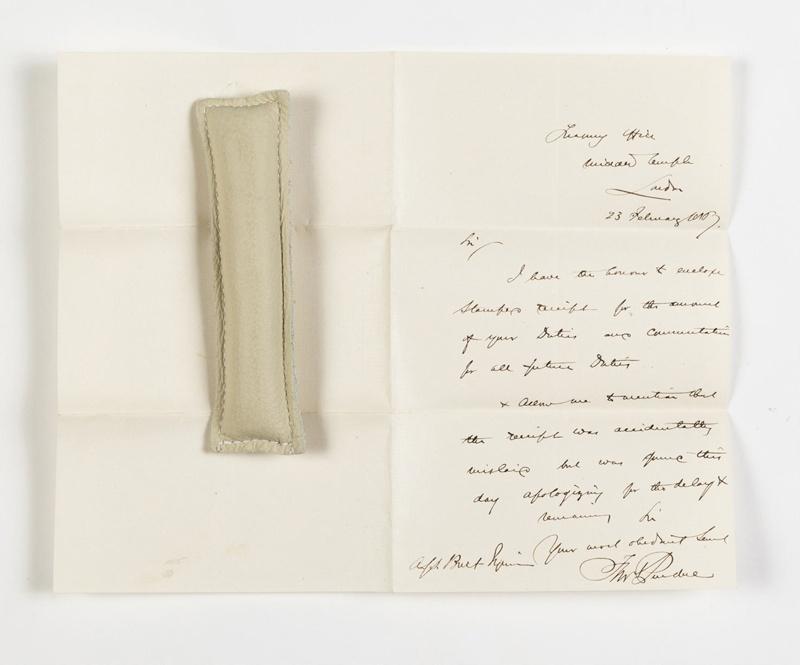 Treasury Office
Middle Temple
London
23 February
Sir
I have the honour to enclose
Stamped receipt for the amount
of your Duties and Commutation
for all future Duties
& Allow me to mention that
the receipt was accidentally
mislaid but was found this
day apologizing for the delay &
remaining Sir
Your most obedient Servt
Thos Purdue
Burt Esquire